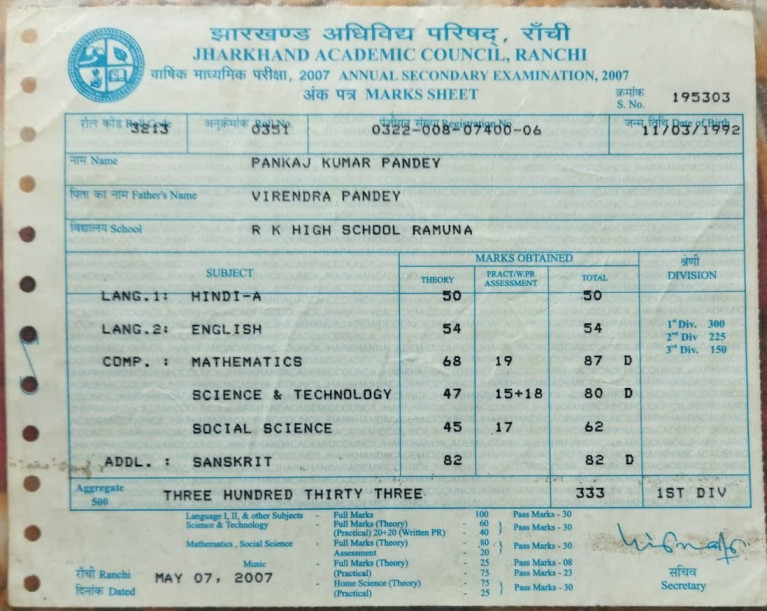 झारखण्ड अधिविद्य परिषद्, राँची
JHARKHAND ACADEMIC COUNCIL, RANCHI
वार्षिक माध्यमिक परीक्षा, 2007 ANNUAL SECONDARY EXAMINATION, 2007
अंक पत्र MARKS SHEET
क्रमांक
S. No. 195303
रोल कोड Roll Code 3213 अनुक्रमांक Roll No. 0351 पंजीयन संख्या Registration No. 0322-008-07400-06 जन्म तिथि Date of Birth 11/03/1992
नाम Name PANKAJ KUMAR PANDEY
पिता का नाम Father's Name VIRENDRA PANDEY
विद्यालय School R K HIGH SCHOOL RAMUNA
SUBJECT MARKS OBTAINED श्रेणी
THEORY PRACT/W.PR ASSESSMENT TOTAL DIVISION
LANG.1: HINDI-A 50 50
LANG.2: ENGLISH 54 54
1st Div. 300
2nd Div 225
3rd Div. 150
COMP. : MATHEMATICS 68 19 87 D
SCIENCE & TECHNOLOGY 47 15+18 80 D
SOCIAL SCIENCE 45 17 62
ADDL. : SANSKRIT 82 82 D
Aggregate 500 THREE HUNDRED THIRTY THREE 333 1ST DIV
Language I, II, & other Subjects - Full Marks 100 Pass Marks - 30
Science & Technology - Full Marks (Theory) 60
(Practical) 20+20 (Written PR) - 40 } Pass Marks - 30
Mathematics, Social Science - Full Marks (Theory) - 80
Assessment - 20 } Pass Marks - 30
Music - Full Marks (Theory) - 25 Pass Marks - 08
(Practical) - 75 Pass Marks - 23
Home Science (Theory) - 75
(Practical) - 25 } Pass Marks - 30
राँची Ranchi
दिनांक Dated MAY 07, 2007
सचिव
Secretary